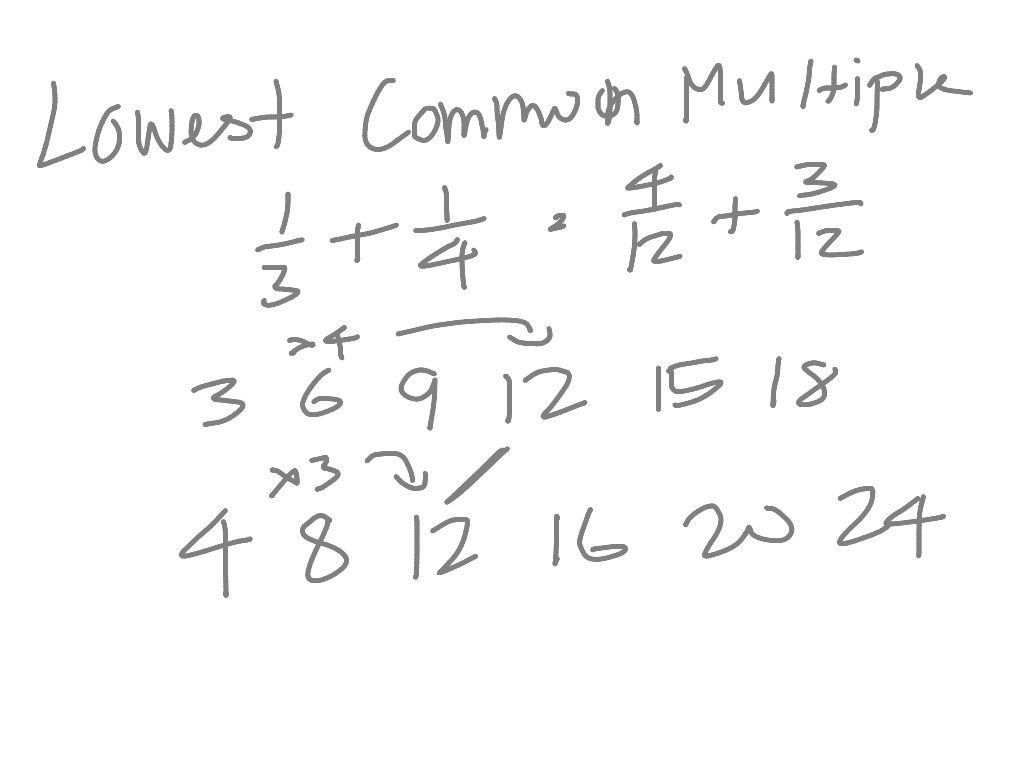 Lowest Common Multiple
1/3 + 1/4 = 4/12 + 3/12
×4
3 6 9 12 15 18
×3
4 8 12 16 20 24